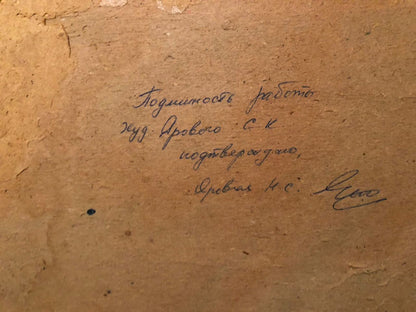 Подлинность работы
худ. Ярового С К
подтверждаю,
Яровая Н С.